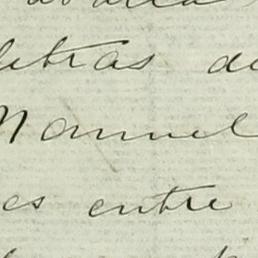 letras de
Manuel
es entre